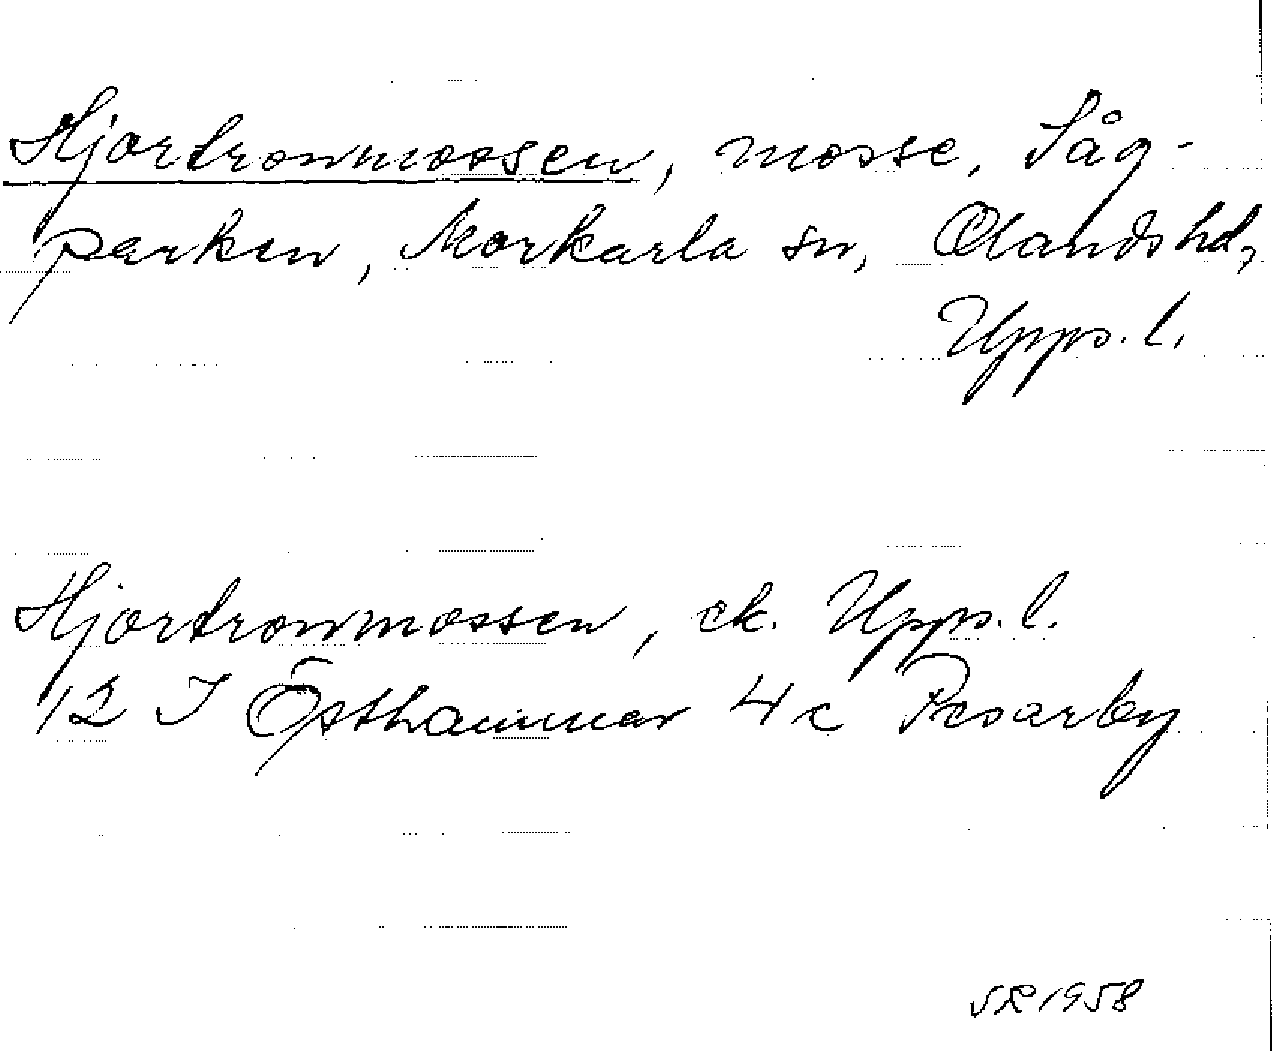 Hjortronmossen, mosse, Såg-
parken, Morkarla sn, Olands hd,
Upps. l.
Hjortronmossen, ek. Upps. l.
12 I Östhammar 4 c Pesarby
SR 1958